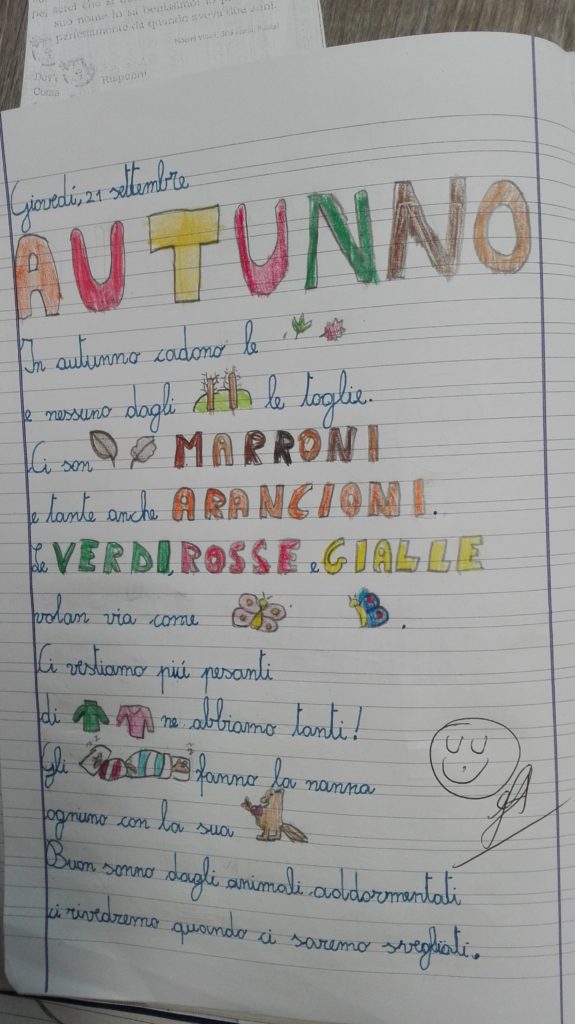 suo nome lo sa benissimo! lo p
perfettamente da quando aveva due anni.
Rispondi
Come
Giovedì, 21 settembre
AUTUNNO
In autunno cadono le
e nessuno dagli le toglie.
Ci son MARRONI
e tante anche ARANCIONI.
Le VERDI, ROSSE e GIALLE
volan via come .
Ci vestiamo piú pesanti
di ne abbiamo tanti!
Gli fanno la nanna
ognuno con la sua
Buon sonno dagli animali addormentati
ci rivedremo quando ci saremo svegliati.